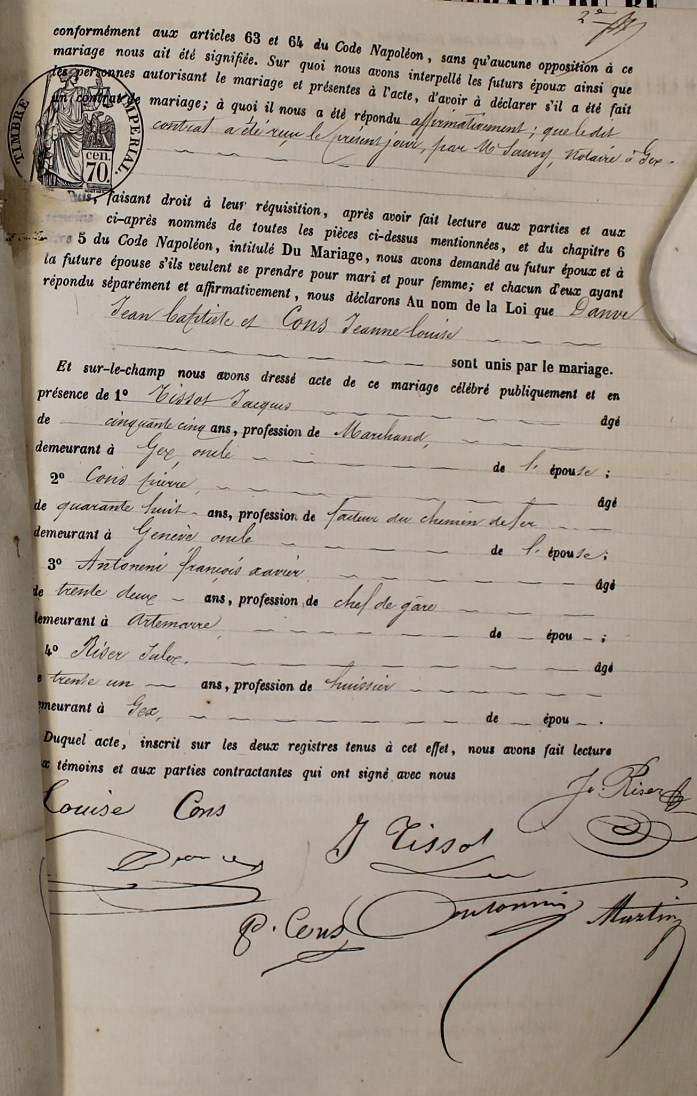 2e
conformément aux articles 63 et 64 du Code Napoléon, sans qu'aucune opposition à ce
mariage nous ait été signifiée. Sur quoi nous avons interpellé les futurs époux ainsi que
les personnes autorisant le mariage et présentes à l'acte, d'avoir à déclarer s'il a été fait
un contrat de mariage; à quoi il nous a été répondu affirmativement; que le dit
contrat a été reçu le présent jour, par Me Notaire à Gex.
TIMBRE IMPERIAL
70 cen.
Puis, faisant droit à leur réquisition, après avoir fait lecture aux parties et aux
témoins ci-après nommés de toutes les pièces ci-dessus mentionnées, et du chapitre 6
titre 5 du Code Napoléon, intitulé Du Mariage, nous avons demandé au futur époux et à
la future épouse s'ils veulent se prendre pour mari et pour femme; et chacun d'eux ayant
répondu séparément et affirmativement, nous déclarons Au nom de la Loi que Danve
Jean Baptiste et Cons Jeanne Louise
sont unis par le mariage.
Et sur-le-champ nous avons dressé acte de ce mariage célébré publiquement et en
présence de 1o Tissot Jacques âgé
de cinquante cinq ans, profession de Marchand,
demeurant à Gex, oncle de l'épouse;
2o Cons pierre, âgé
de quarante huit ans, profession de facteur du chemin de fer
demeurant à Genève oncle de l'épouse;
3o Antonini françois xavier âgé
de trente deux ans, profession de chef de gare
demeurant à Artemarre, de épou ;
4o Riser Jules. âgé
e trente un ans, profession de huissier
meurant à Gex, de épou .
Duquel acte, inscrit sur les deux registres tenus à cet effet, nous avons fait lecture
x témoins et aux parties contractantes qui ont signé avec nous
Louise Cons Js. Riser
J Tissot
P. Cons Antonini Martin